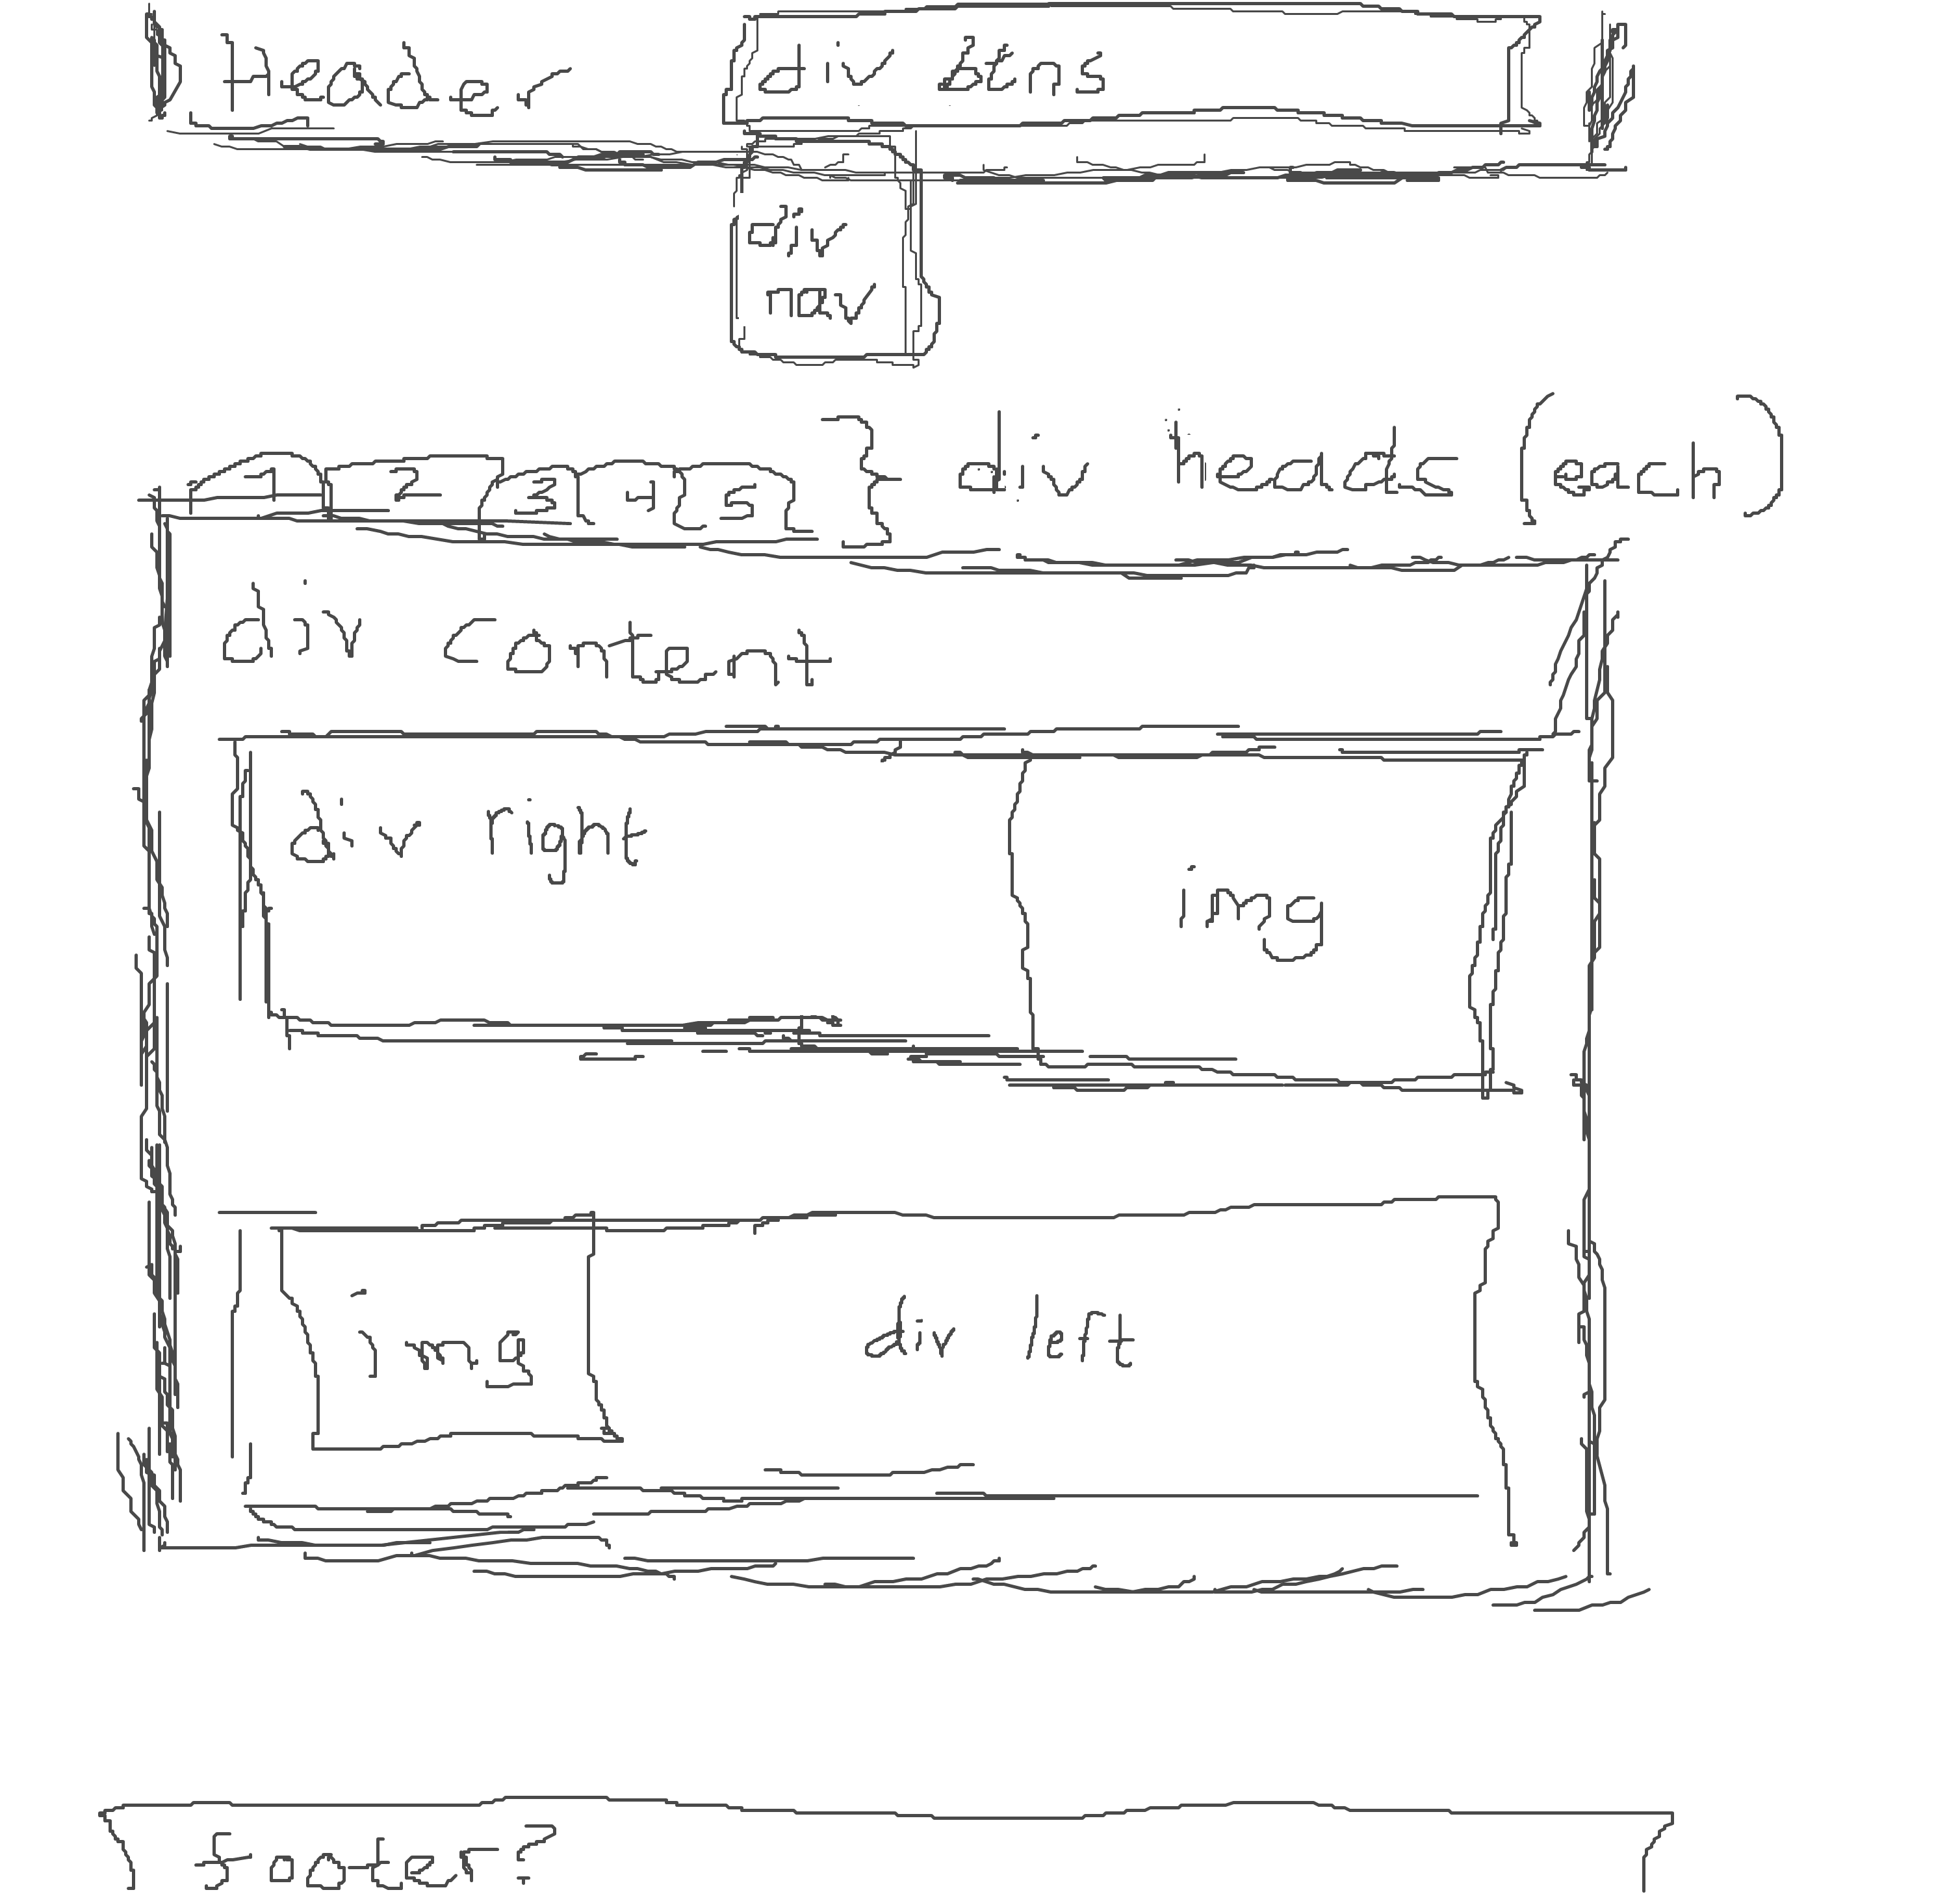 Header
div btns
div
nav
1 2 3 4 5 } div heads (each)
div content
div right
img
img
div left
footer?